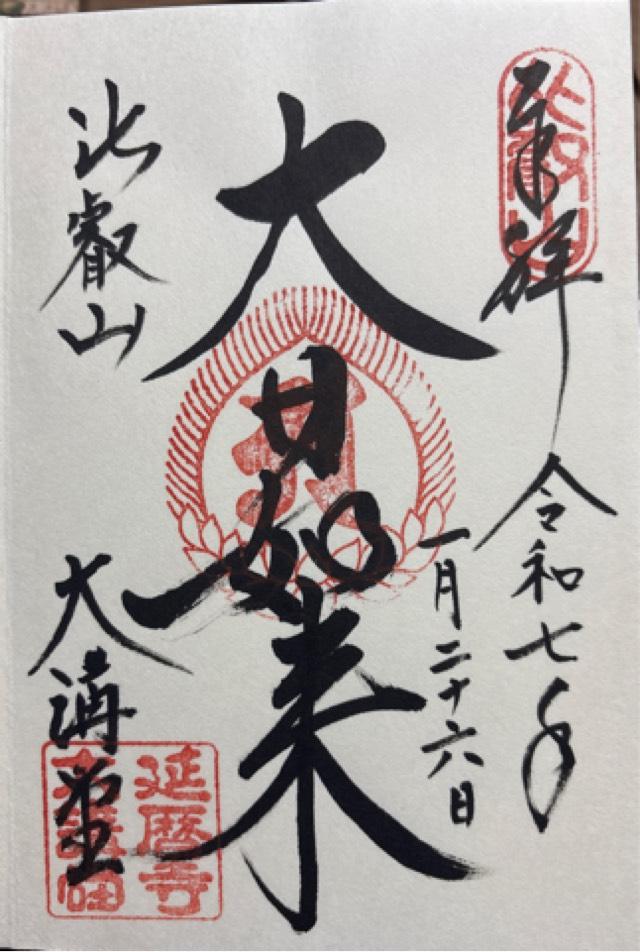 奉拝
比叡山
令和七年
一月二十六日
大日如来
比叡山
大講堂
延暦寺
大講堂